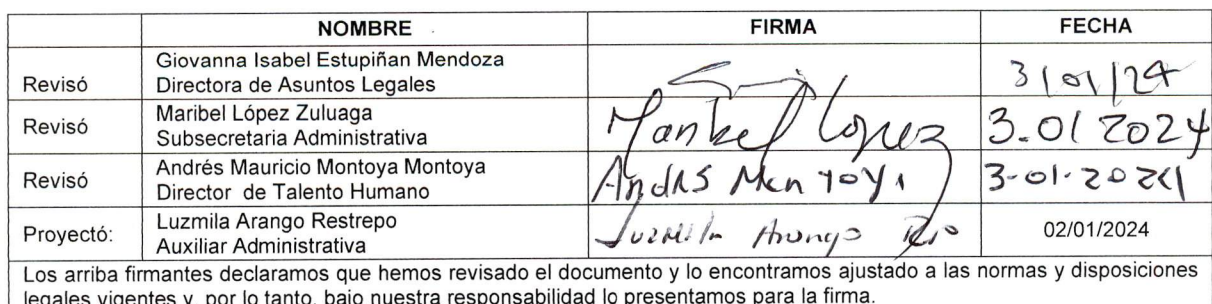 NOMBRE FIRMA FECHA
Giovanna Isabel Estupiñan Mendoza
Revisó Directora de Asuntos Legales 3/01/24
Maribel López Zuluaga
Revisó Subsecretaria Administrativa Maribel López 3-01 2024
Andrés Mauricio Montoya Montoya
Revisó Director de Talento Humano Andrés Montoya 3-01-2024
Luzmila Arango Restrepo
Proyectó: Auxiliar Administrativa Luzmila Arango 02/01/2024
Los arriba firmantes declaramos que hemos revisado el documento y lo encontramos ajustado a las normas y disposiciones
legales vigentes y, por lo tanto, bajo nuestra responsabilidad lo presentamos para la firma.